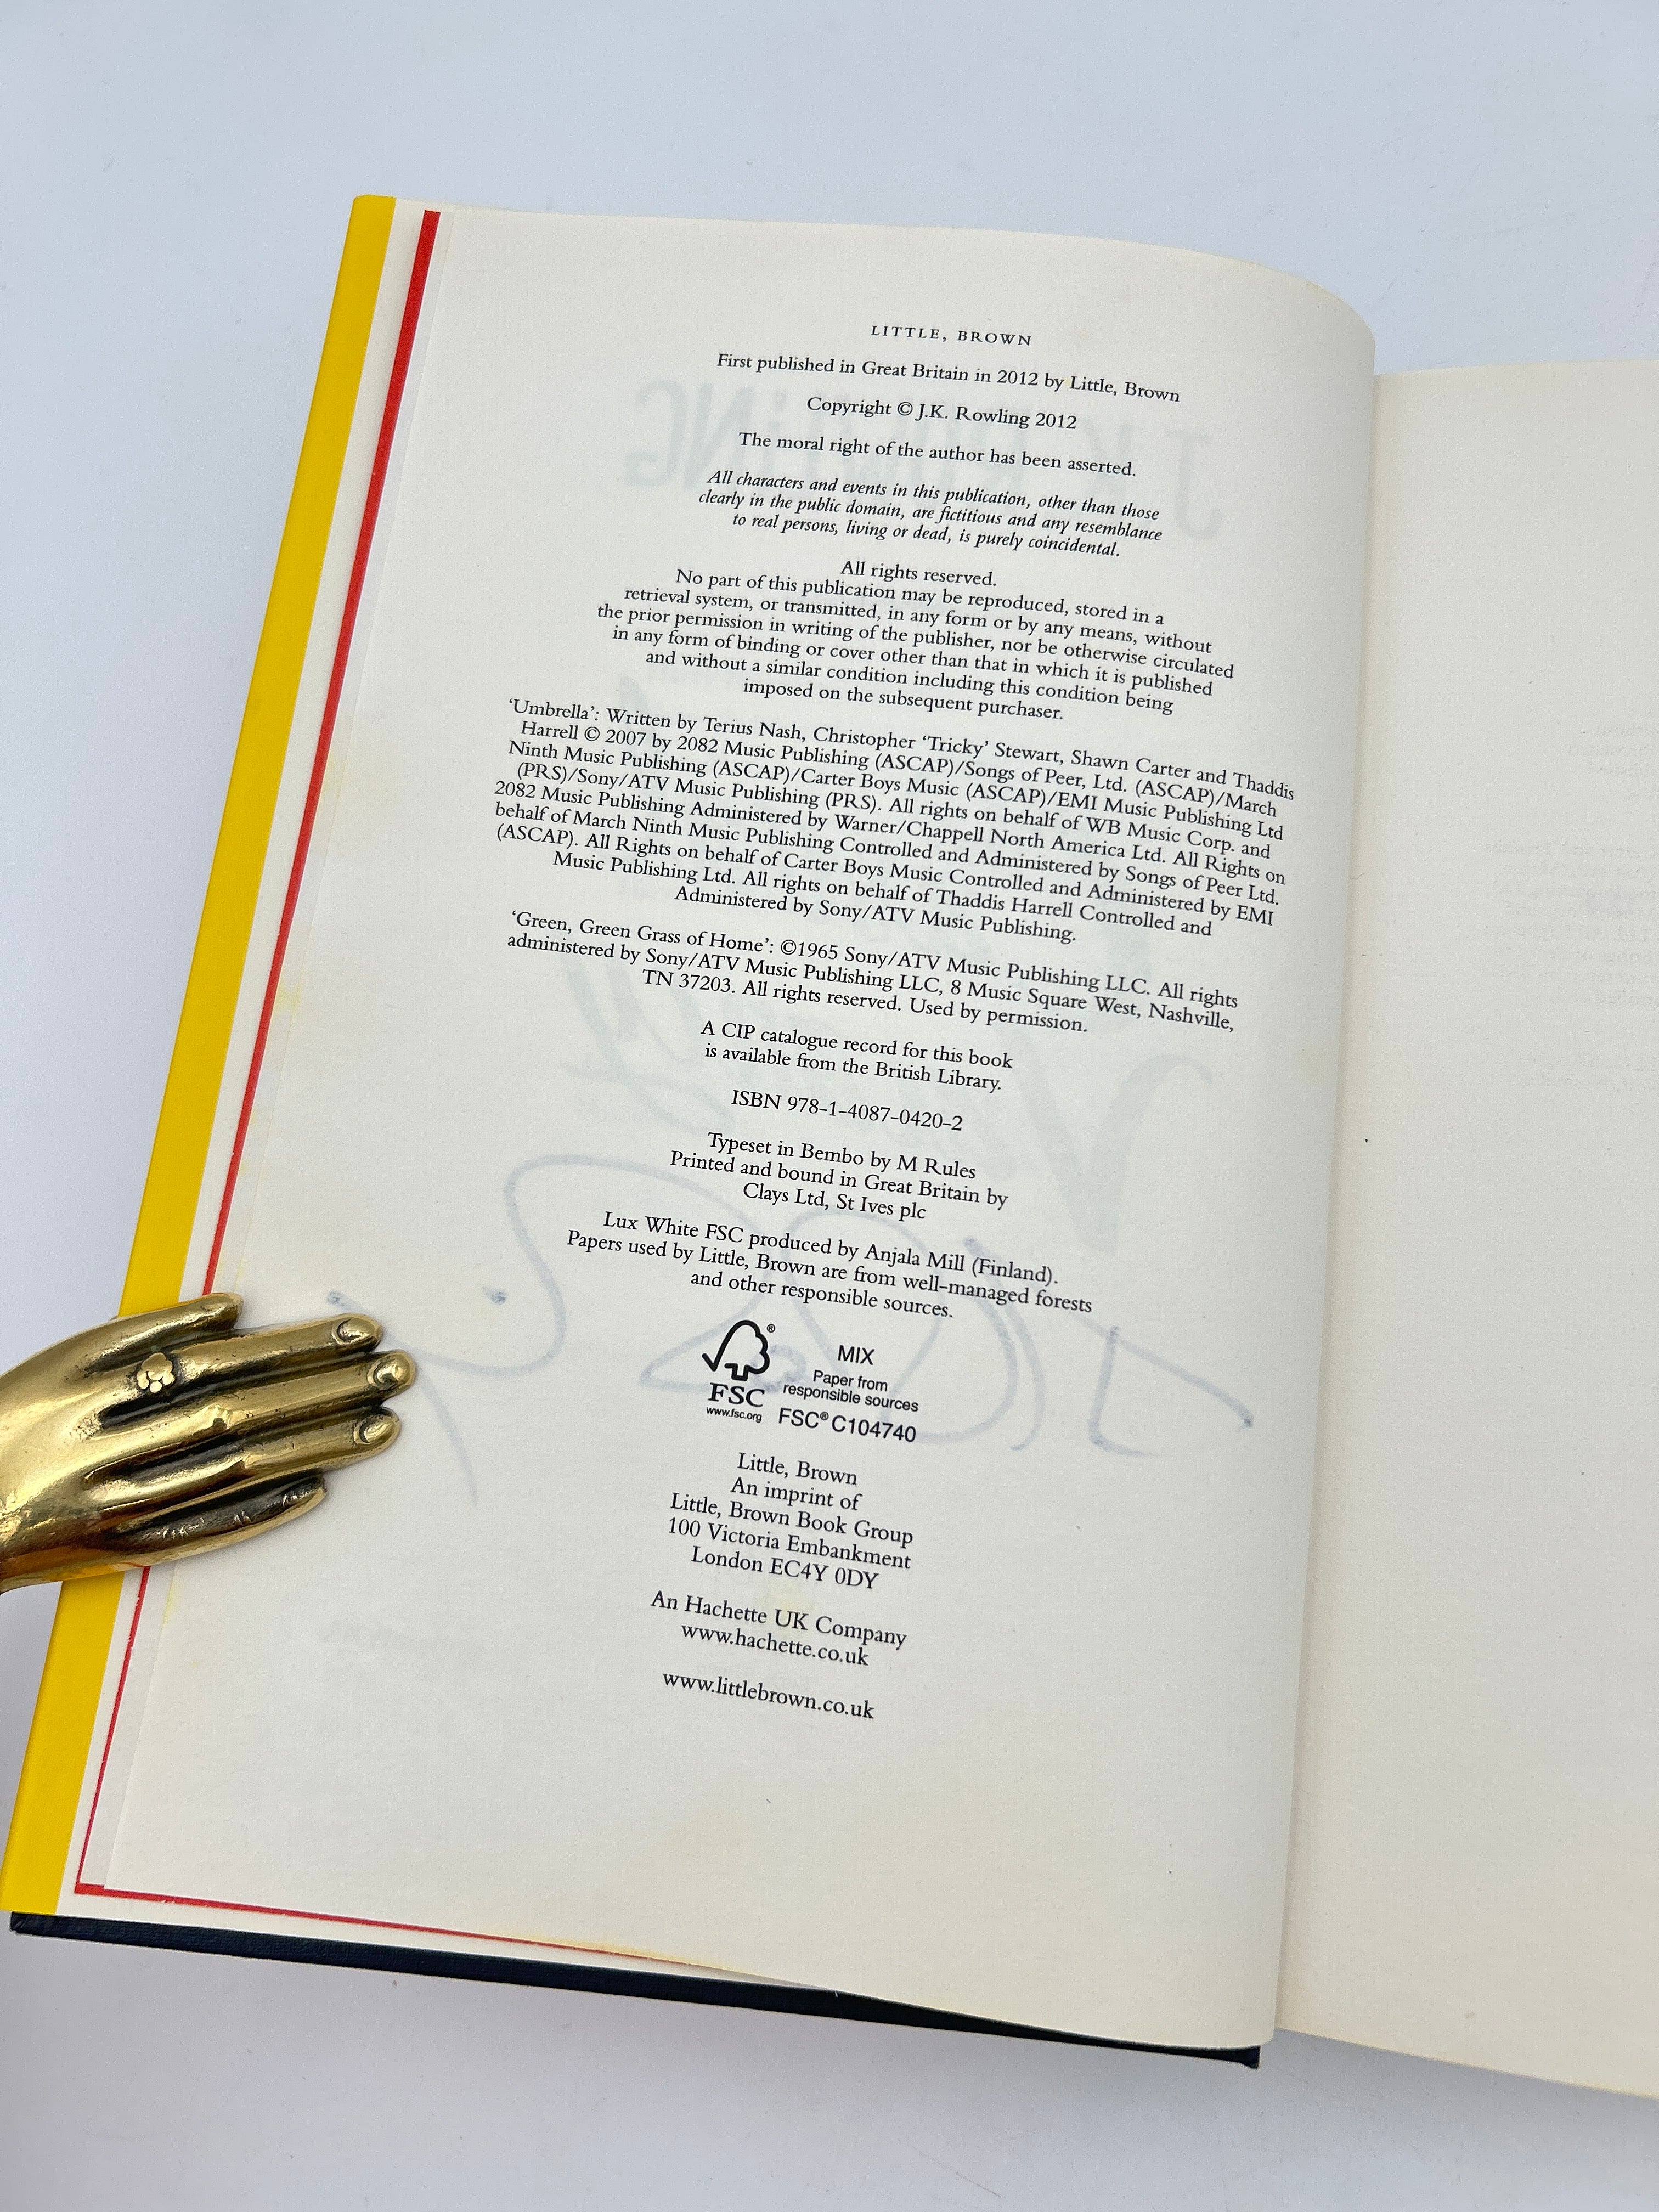 LITTLE, BROWN
First published in Great Britain in 2012 by Little, Brown
Copyright © J.K. Rowling 2012
The moral right of the author has been asserted.
All characters and events in this publication, other than those
clearly in the public domain, are fictitious and any resemblance
to real persons, living or dead, is purely coincidental.
All rights reserved.
No part of this publication may be reproduced, stored in a
retrieval system, or transmitted, in any form or by any means, without
the prior permission in writing of the publisher, nor be otherwise circulated
in any form of binding or cover other than that in which it is published
and without a similar condition including this condition being
imposed on the subsequent purchaser.
‘Umbrella’: Written by Terius Nash, Christopher ‘Tricky’ Stewart, Shawn Carter and Thaddis
Harrell © 2007 by 2082 Music Publishing (ASCAP)/Songs of Peer, Ltd. (ASCAP)/March
Ninth Music Publishing (ASCAP)/Carter Boys Music (ASCAP)/EMI Music Publishing Ltd
(PRS)/Sony/ATV Music Publishing (PRS). All rights on behalf of WB Music Corp. and
2082 Music Publishing Administered by Warner/Chappell North America Ltd. All Rights on
behalf of March Ninth Music Publishing Controlled and Administered by Songs of Peer Ltd.
(ASCAP). All Rights on behalf of Carter Boys Music Controlled and Administered by EMI
Music Publishing Ltd. All rights on behalf of Thaddis Harrell Controlled and
Administered by Sony/ATV Music Publishing.
‘Green, Green Grass of Home’: ©1965 Sony/ATV Music Publishing LLC. All rights
administered by Sony/ATV Music Publishing LLC, 8 Music Square West, Nashville,
TN 37203. All rights reserved. Used by permission.
A CIP catalogue record for this book
is available from the British Library.
ISBN 978-1-4087-0420-2
Typeset in Bembo by M Rules
Printed and bound in Great Britain by
Clays Ltd, St Ives plc
Lux White FSC produced by Anjala Mill (Finland).
Papers used by Little, Brown are from well-managed forests
and other responsible sources.
®
FSC
www.fsc.org
MIX
Paper from
responsible sources
FSC® C104740
Little, Brown
An imprint of
Little, Brown Book Group
100 Victoria Embankment
London EC4Y 0DY
An Hachette UK Company
www.hachette.co.uk
www.littlebrown.co.uk